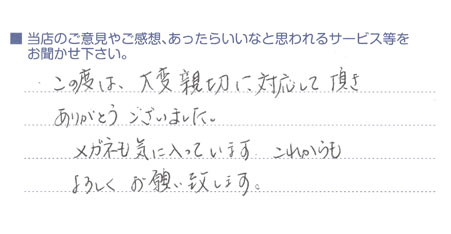 ■ 当店のご意見やご感想、あったらいいなと思われるサービス等を
お聞かせ下さい。
この度は、大変親切に対応して頂き
ありがとうございました。
メガネも気に入っています これからも
よろしくお願い致します。